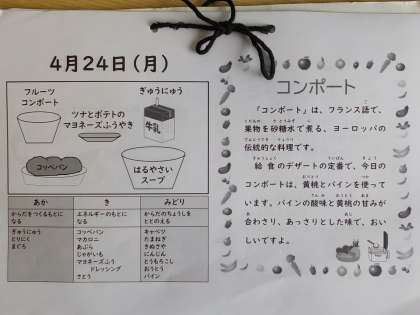 4月24日（月）
フルーツ
コンポート
ぎゅうにゅう
牛乳
ツナとポテトの
マヨネーズふうやき
コッペパン
はるやさい
スープ
あか
き
みどり
からだをつくるもとに
なる
エネルギーのもとに
なる
からだのちょうしを
ととのえる
ぎゅうにゅう
とりにく
まぐろ
コッペパン
マカロニ
あぶら
じゃがいも
マヨネーズふう
ドレッシング
さとう
キャベツ
たまねぎ
きぬさや
にんじん
とうもろこし
おうとう
パイン
コンポート
「コンポート」は、フランス語で、
果物を砂糖水で煮る、ヨーロッパの
伝統的な料理です。
給食のデザートの定番で、今日の
コンポートは、黄桃とパインを使って
います。パインの酸味と黄桃の甘みが
合わさり、あっさりとした味で、おい
しいですよ。